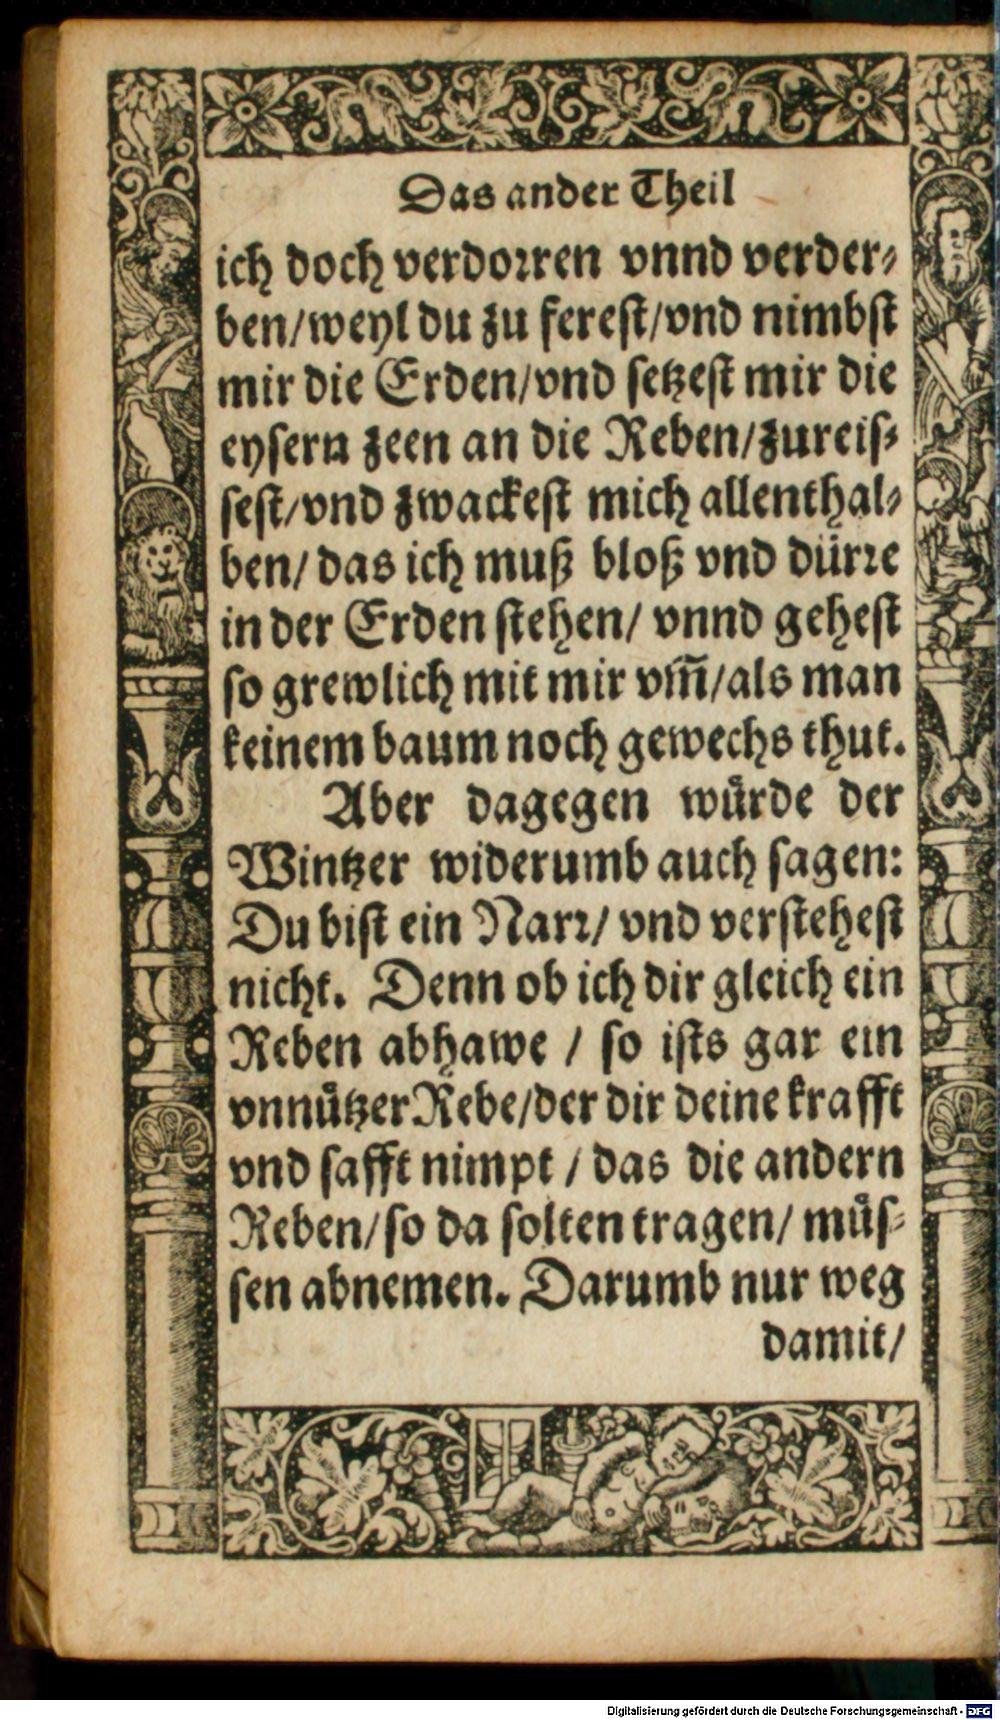 Das ander Theil
ich doch verdorren vnnd verder⸗
ben/weyl du zu ferest/vnd nimbst
mir die Erden/vnd setzest mir die
eysern zeen an die Reben/zureis⸗
sest/vnd zwackest mich allenthal⸗
ben/das ich muß bloß vnd dürre
in der Erden stehen/ vnnd gehest
so grewlich mit mir vm̃/als man
keinem baum noch gewechs thut.
Aber dagegen wuͤrde der
Wintzer widerumb auch sagen:
Du bist ein Narr/ vnd verstehest
nicht. Denn ob ich dir gleich ein
Reben abhawe / so ists gar ein
vnnuͤtzer Rebe/der dir deine krafft
vnd safft nimpt / das die andern
Reben/so da solten tragen/ muͤs⸗
sen abnemen. Darumb nur weg
damit/
Digitalisierung gefördert durch die Deutsche Forschungsgemeinschaft - DFG